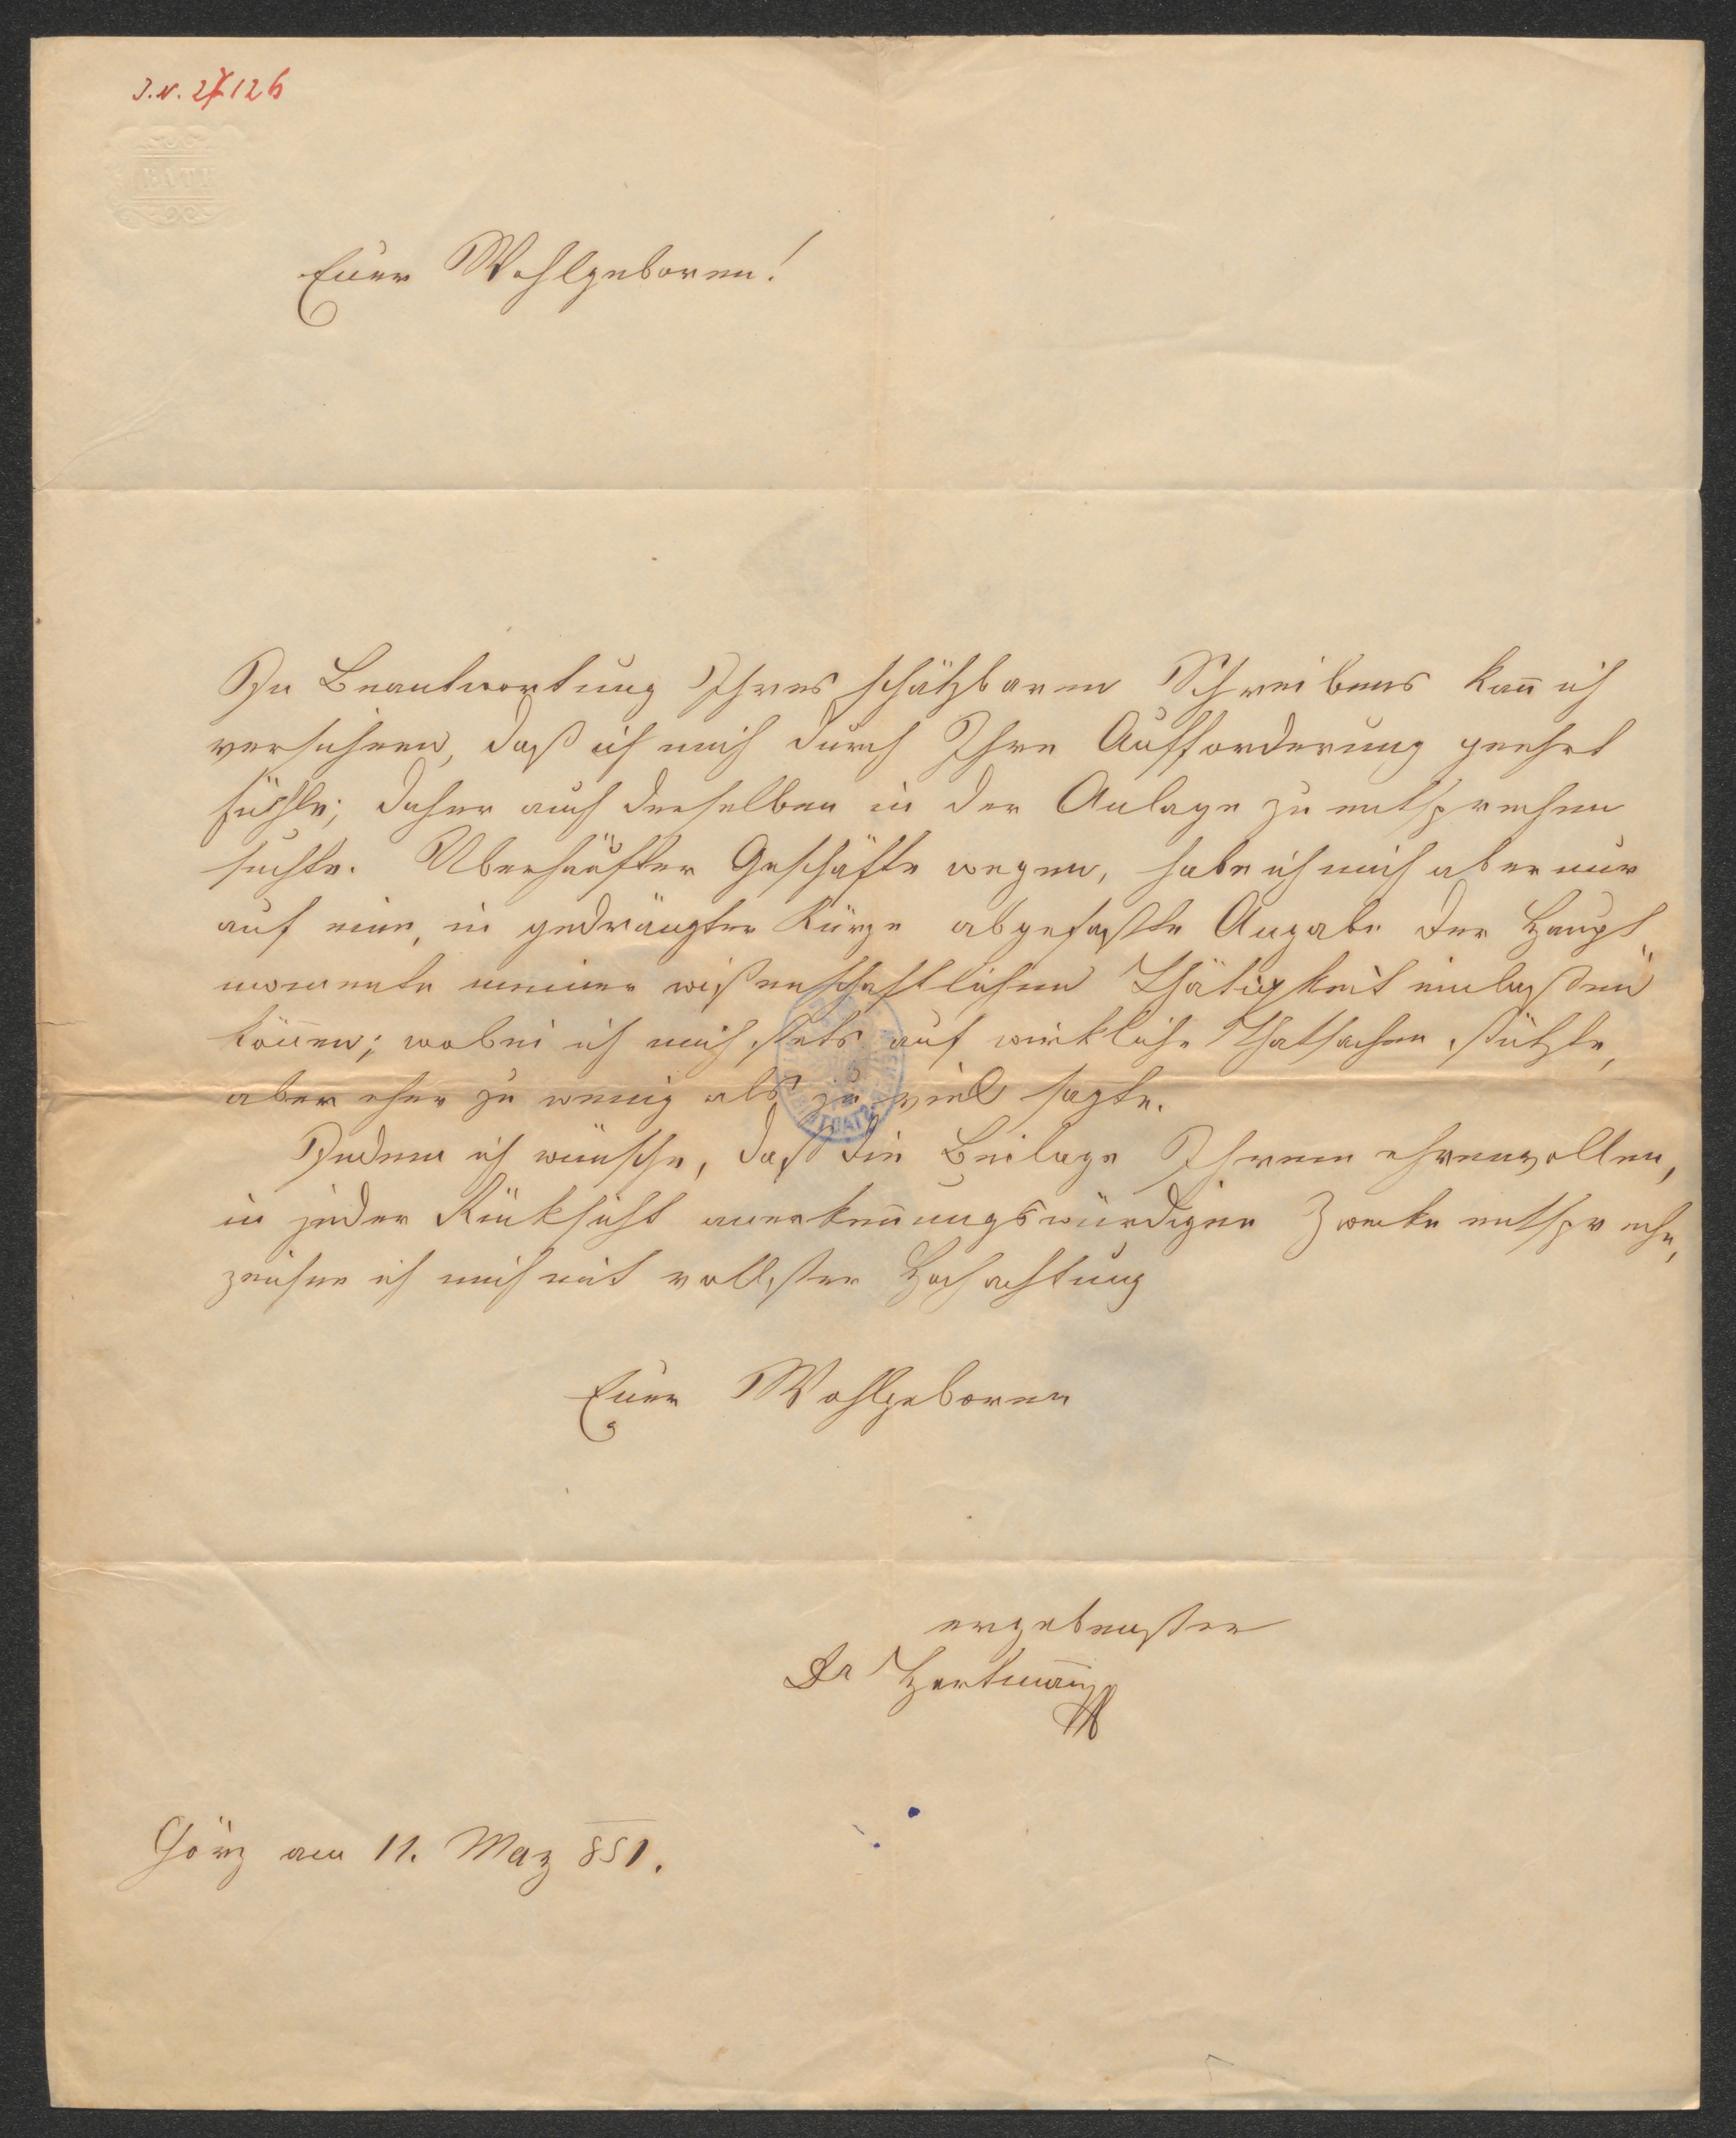 J.N. 27126
BATH
Euer Wohlgeboren!
In Beantwortung Ihres schätzbaren Schreibens kan̄ ich
versichern, daß ich mich durch Ihre Aufforderung geehrt
fühle; daher auch derselben in der Anlage zu entsprechen
suchte. Überhäufter Geschäfte wegen, habe ich mich aber nur
auf eine, in gedrängter Kürze abgefaßte Angabe der Haupt„
momente meiner wißenschaftlichen Thätigkeit einlaßen
kön̄en; wobei ich mich stets auf wirkliche Thatsachen stützte,
aber eher zu wenig als zu viel sagte.
Indem ich wünsche, daß die Beilage Ihrem ehrenvollen,
in jeder Rücksicht anerken̄ungswürdigen Zwecke entspreche,
zeichne ich mich mit vollster Hochachtung
Euer Wohlgeboren
ergebenster
Dr Hartman̄
Görz am 11. Marz 851.